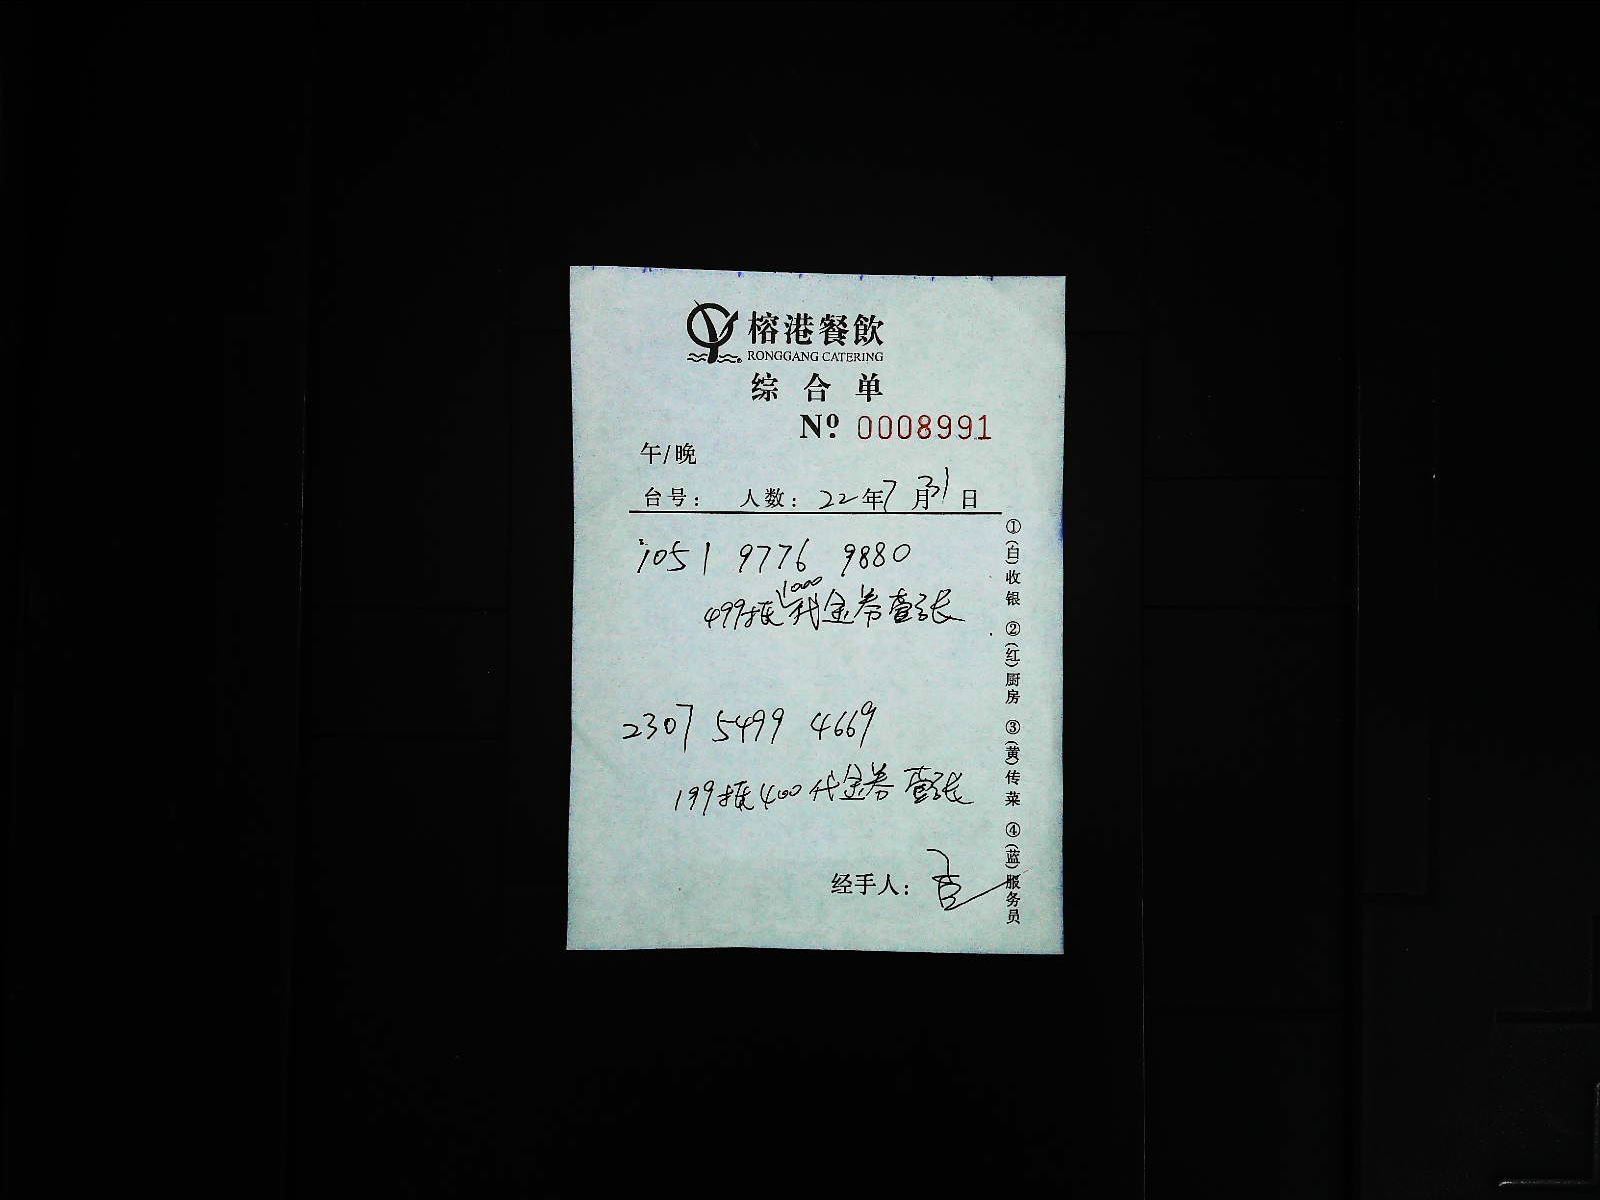 榕港餐飲
RONGGANG CATERING
综合单
Nº 0008991
午/晚
台号: 人数: 22年7月31日
1051 9776 9880
499抵1000代金券壹张
2307 5499 4669
199抵400代金券壹张
经手人:
①(白)收银 ②(红)厨房 ③(黄)传菜 ④(蓝)服务员